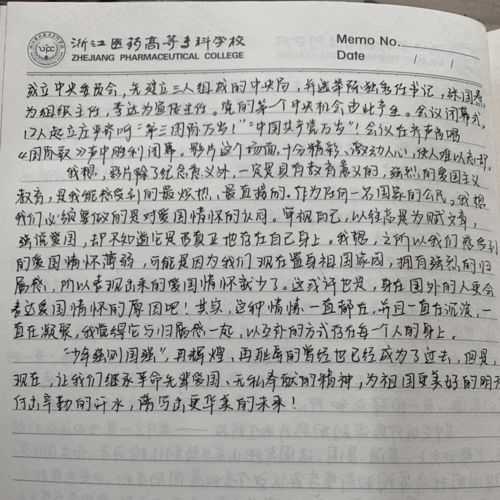 浙江医药高等专科学校
ZHEJIANG PHARMACEUTICAL COLLEGE
Memo No.
Date / /
成立中央委员会,先建立三人组成的中央局,并选举陈独秀任书记,张国焘
为组织主任,李达为宣传主任。党的第一个中央机会由此产生。会议闭幕式,
12人起立庄举呼"第三国际万岁!""中国共产党万岁"!会议在齐声唱
《国际歌》声中胜利闭幕。影片这个场面,十分精彩、激动人心,使人难以忘却。
我想,影片除了纪念意义外,一定是具有教育意义的,强烈的爱国主义
教育,是我能感受到的最炽热、最直接的。作为任何一名国家的公民。我想
我们必须要做的是对爱国情怀的认同。审视自己,以往总是为赋文章,
强说爱国,却不知道它是否真正地存在自己身上。我想,之所以我们感受到
的爱国情怀薄弱,可能是因为我们现在置身祖国家园,拥有强烈的归
属感,所以表现出来的爱国情怀就少了。这或许也是,身在国外的人更会
表达爱国情怀的原因吧!其实,这种情愫一直都在,并且一直在沉淀,一
直在凝聚,我觉得它与归属感一起,以互补的方式存在每个人的身上。
"少年强则国强",再辉煌、再耻辱的曾经也已经成为了过去,但是,
现在,让我们继承革命先辈爱国、无私奉献的精神,为祖国更美好的明天
付出辛勤的汗水,谱写出更华美的未来!